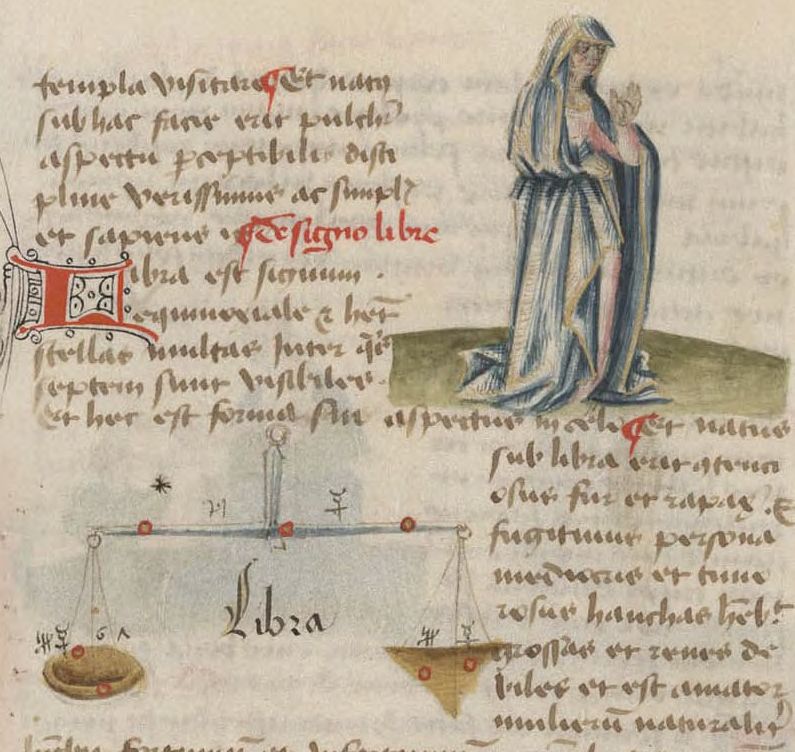 templa visitare ¶ Et nat9
sub hac facie erit pulch̄
aspectu pceptibilis disci
pline verissimus ac simpl
et sapiens ¶ de signo libre
Libra est signum
equinoxiale et het
stellas multas Inter q̄s
septem sunt visibiles
Et hec est forma sui aspectus in celo ¶ Et natus
sub libra erit 9tenci
osus fur et rapax
fugitiuus persona
mediocris et timo
rosus hanchas heb̄t
grossas et renes de
biles et est amator
mulierū naturalit
Libra